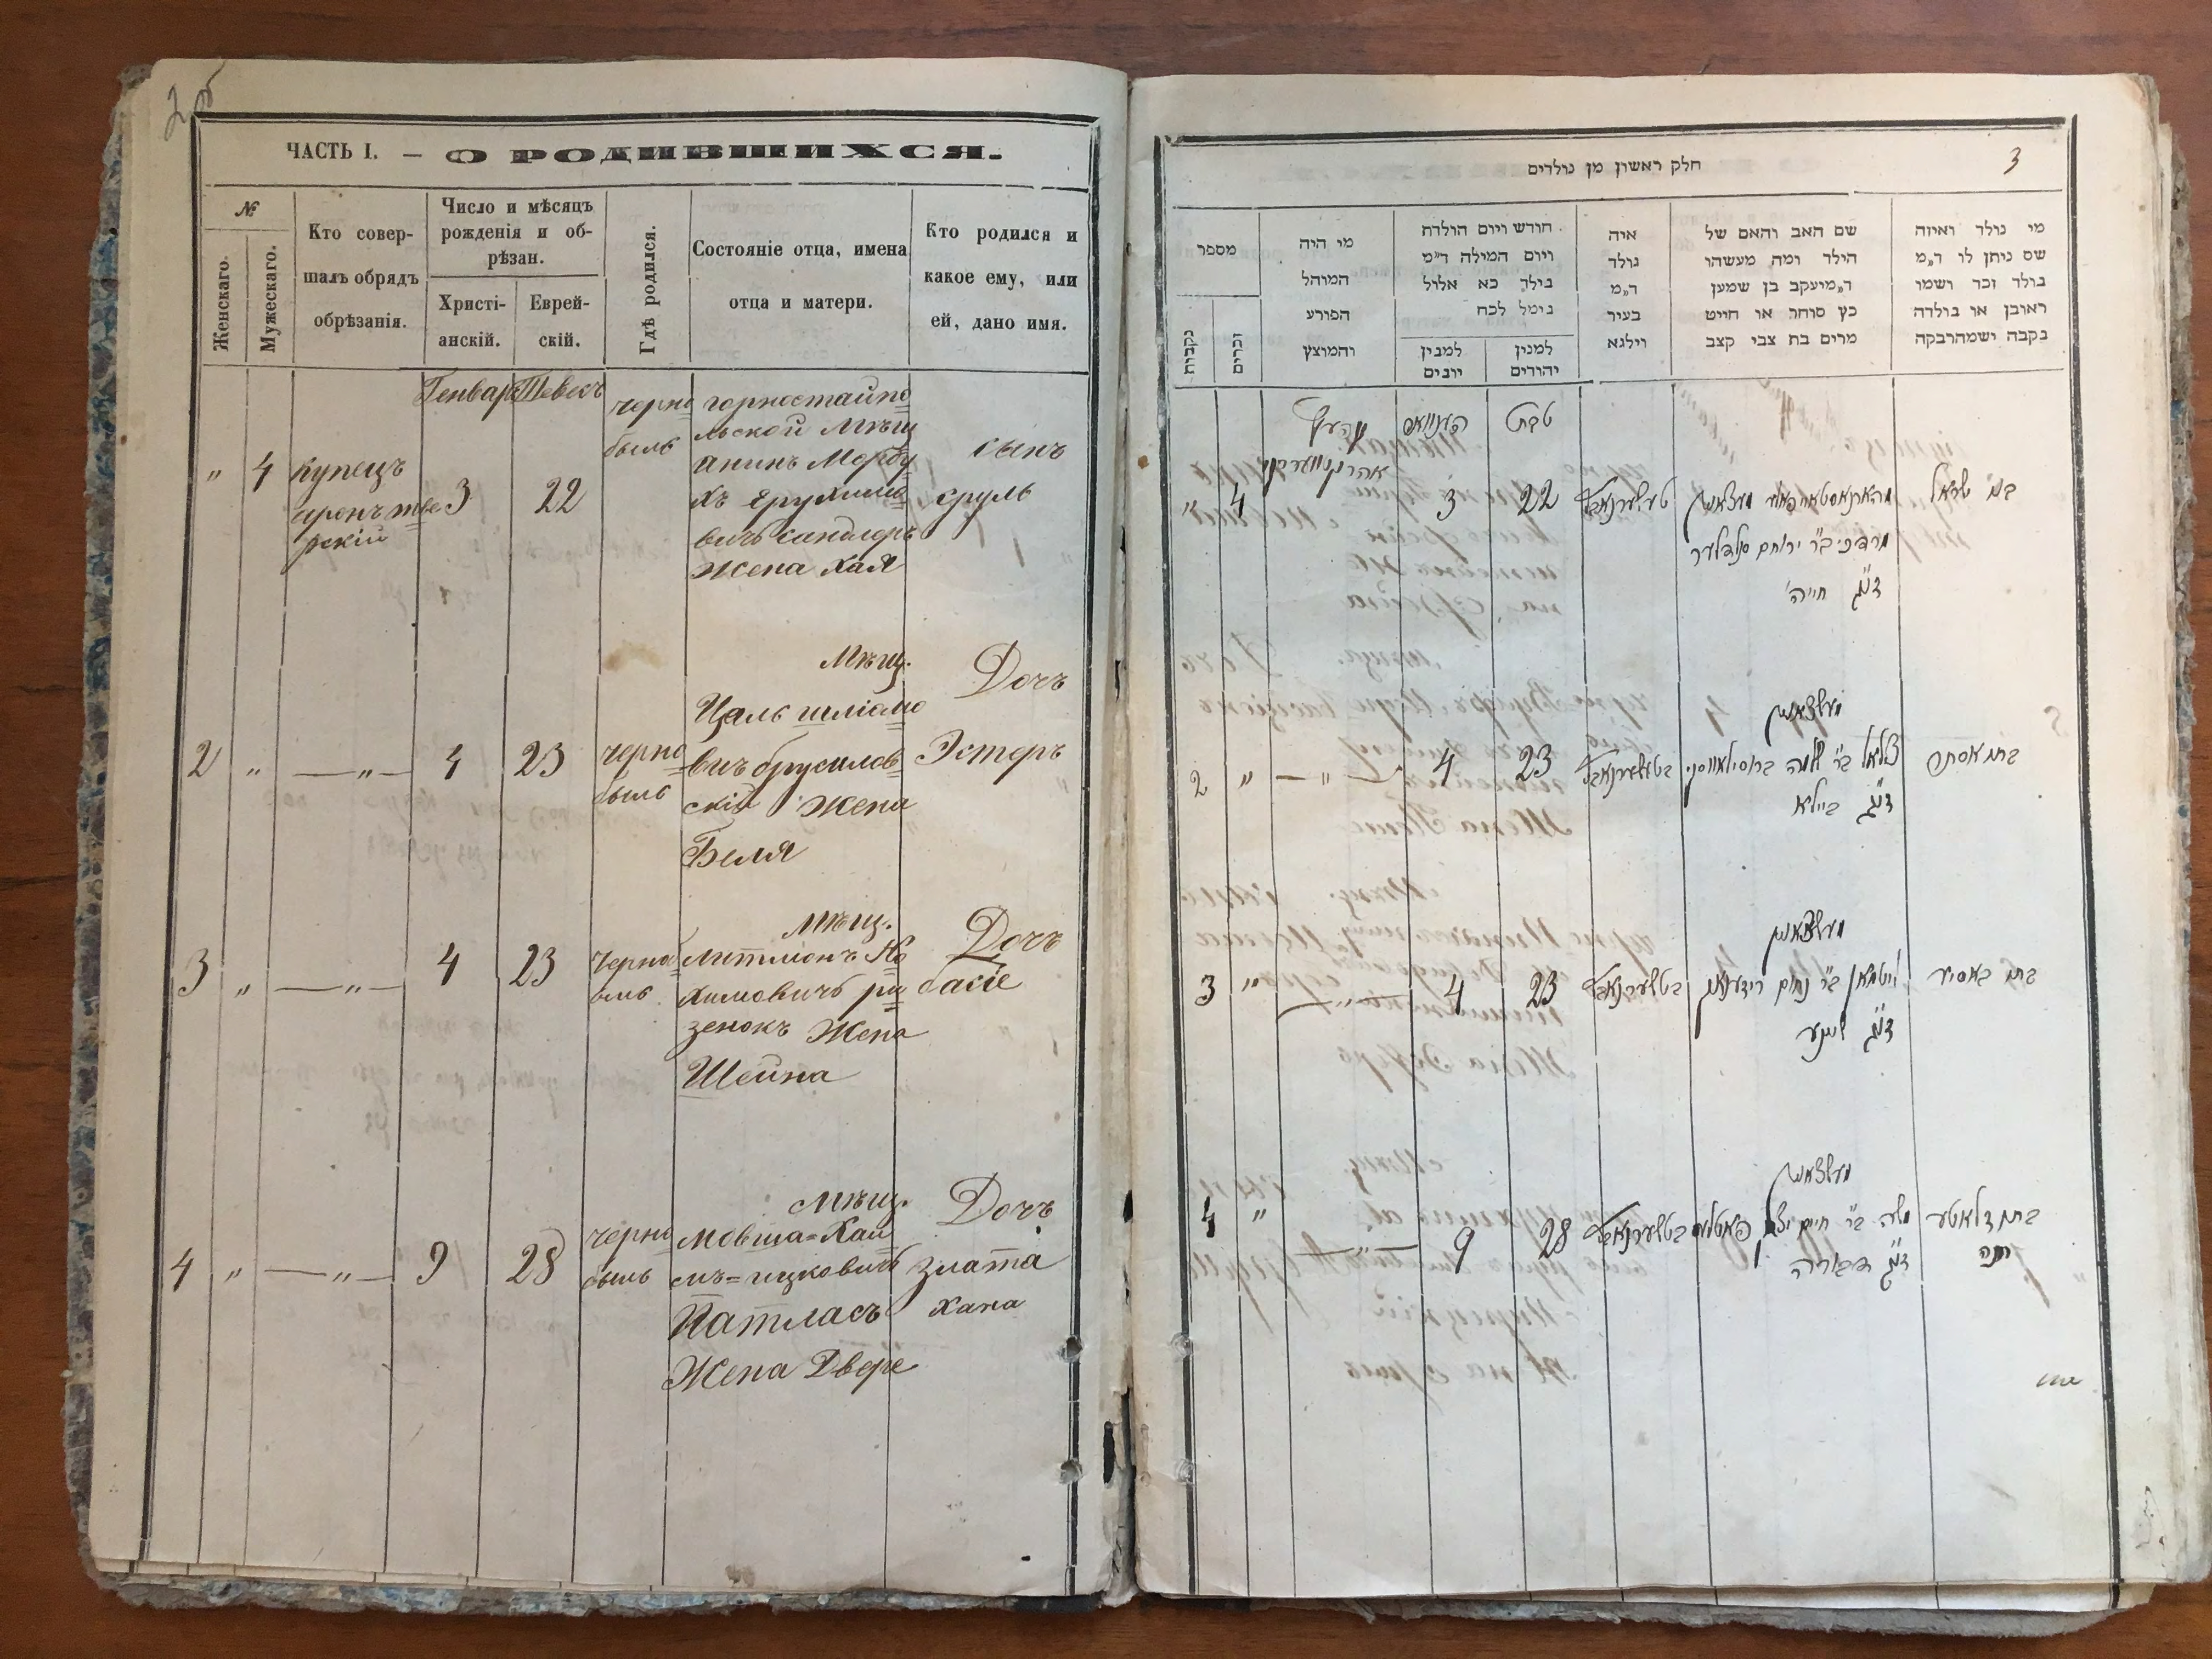 ЧАСТЬ I. — О РОДИВШИХСЯ.
№
Женскаго.
Мужескаго.
Кто совер-
шалъ обрядъ
обрѣзанія.
Число и мѣсяцъ
рожденія и об-
рѣзан.
Христі-
анскій.
Еврей-
скій.
Гдѣ родился.
Состояніе отца, имена
отца и матери.
Кто родился и
какое ему, или
ей, дано имя.
Генварь Тевесъ
"
4
купецъ
3
22
черно
быль
горностайпо
льской мѣщ
анинъ Морду
хъ Ерухимо
вичъ сандлеръ
Жена Хая
сынъ
сруль
2
"
— " —
4
23
черно
быль
Мѣщ.
Цаль шліомо
вичъ брусилов
скій Жена
Беля
Дочъ
Эстеръ
3
"
— " —
4
23
черно
быль
Мѣщ.
Литманъ Но
химовичъ ри
зенокъ Жена
Шейна
Дочъ
басіе
4
"
— " —
9
28
черно
быль
Мѣщ.
мовша=Хаи
мъ=ицковичъ
Патласъ
Жена Двере
Дочъ
злата
хана
חלק ראשון מן נולדים
3
מי נולד ואיזה
שם ניתן לו ד"מ
נולד זכר ושמו
ראובן או נולדה
נקבה ישמהרבקה
שם האב והאם של
הילד ומה מעשהו
ד"מיעקב בן שמען
כץ סוחר או חייט
מרים בת צבי קצב
איה
נולד
ד"מ
בעיר
וילנא
חודש ויום הולדת
ויום המילה ד"מ
נילד כא אלול
נימל לכח
למנין
יהודים
למנין
יונים
מי היה
המוהל
הפורע
והמוצץ
מספר
זכרים
נקבות
טבת
22
3
4
"
בן ישראל
מרדכי ב"ר ירוחם סנדלער
זוג' חייה
בת אסתר
צלאל ב"ר שלמה ברוסילאווסקי
זוג' ביילא
בטשערנאבל
23
4
— " —
"
2
בת באסיע
ליטמאן ב"ר נחום רידענאג
זוג' שיינע
בטשערנאבל
23
4
— " —
"
3
בת זלאטע
חנה
משה ב"ר חיים יצחק פאטלאס
זוג' דבורה
בטשערנאבל
28
9
— " —
"
4